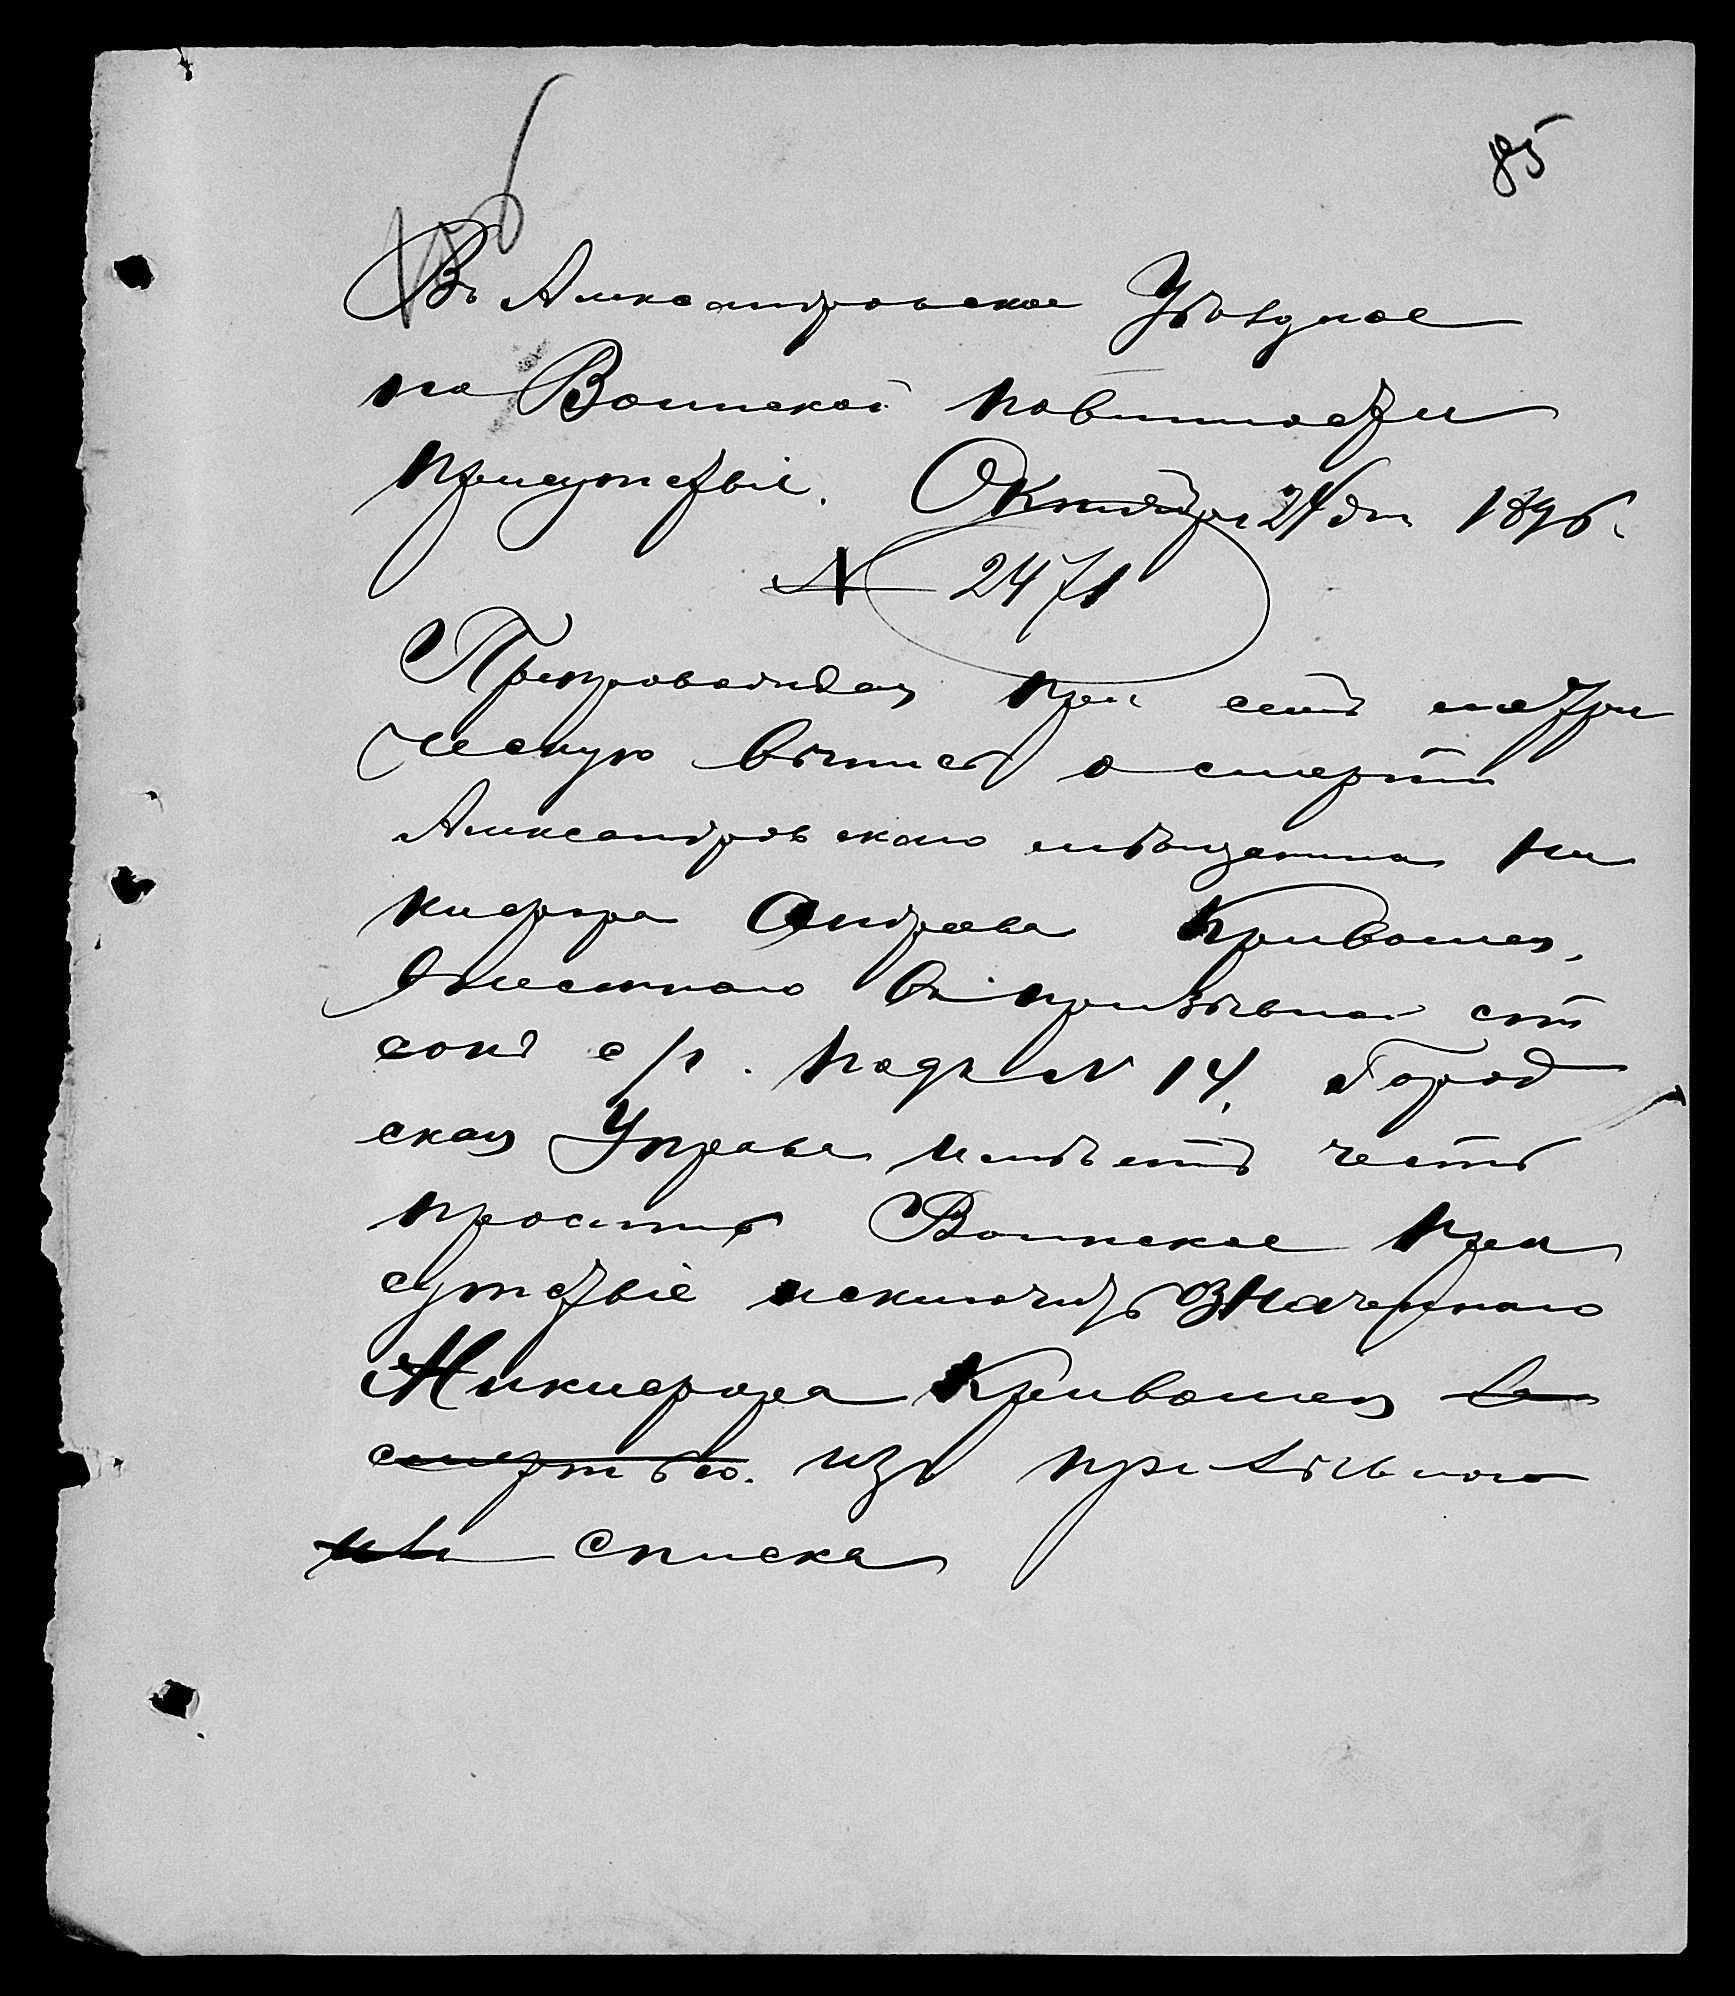 85
Въ Александровское Уѣздное
по Воинской повинности
присутствіе. Октября 24 дня 1896.
№ 2471
Препровождая при семъ метри
ческую выпись о смерти
Александровскаго мѣщанина Ни
кифора Андреева Кривошея,
внесеннаго въ призывной спи
сокъ с/г. подъ № 14, Город
ская Управа имѣетъ честь
просить Воинское При
сутствіе исключить означеннаго
Никифора Кривошея за
смертью. изъ призывного
списка